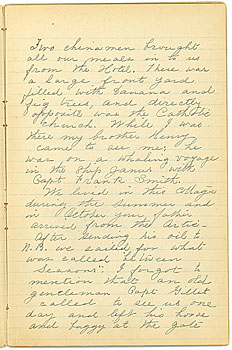 Two chinamen brought
all our meals in to us
from the Hotel. There was
a large front yard
filled with Banana and
fig trees, and directly
opposite was the Catholic
Church. While I was
there my brother Henry
came to see me; he
was on a whaling voyage
in the Ship James with
Capt Frank Smith.
We lived in this cottage
during the summer and
in October your father
arrived from the Arctic.
After sending his oil to
N.B. we sailed for what
was called "between
Seasons". I forgot to
mention that an old
gentleman Capt
called to see us one
day and left his horse
and buggy at the gate